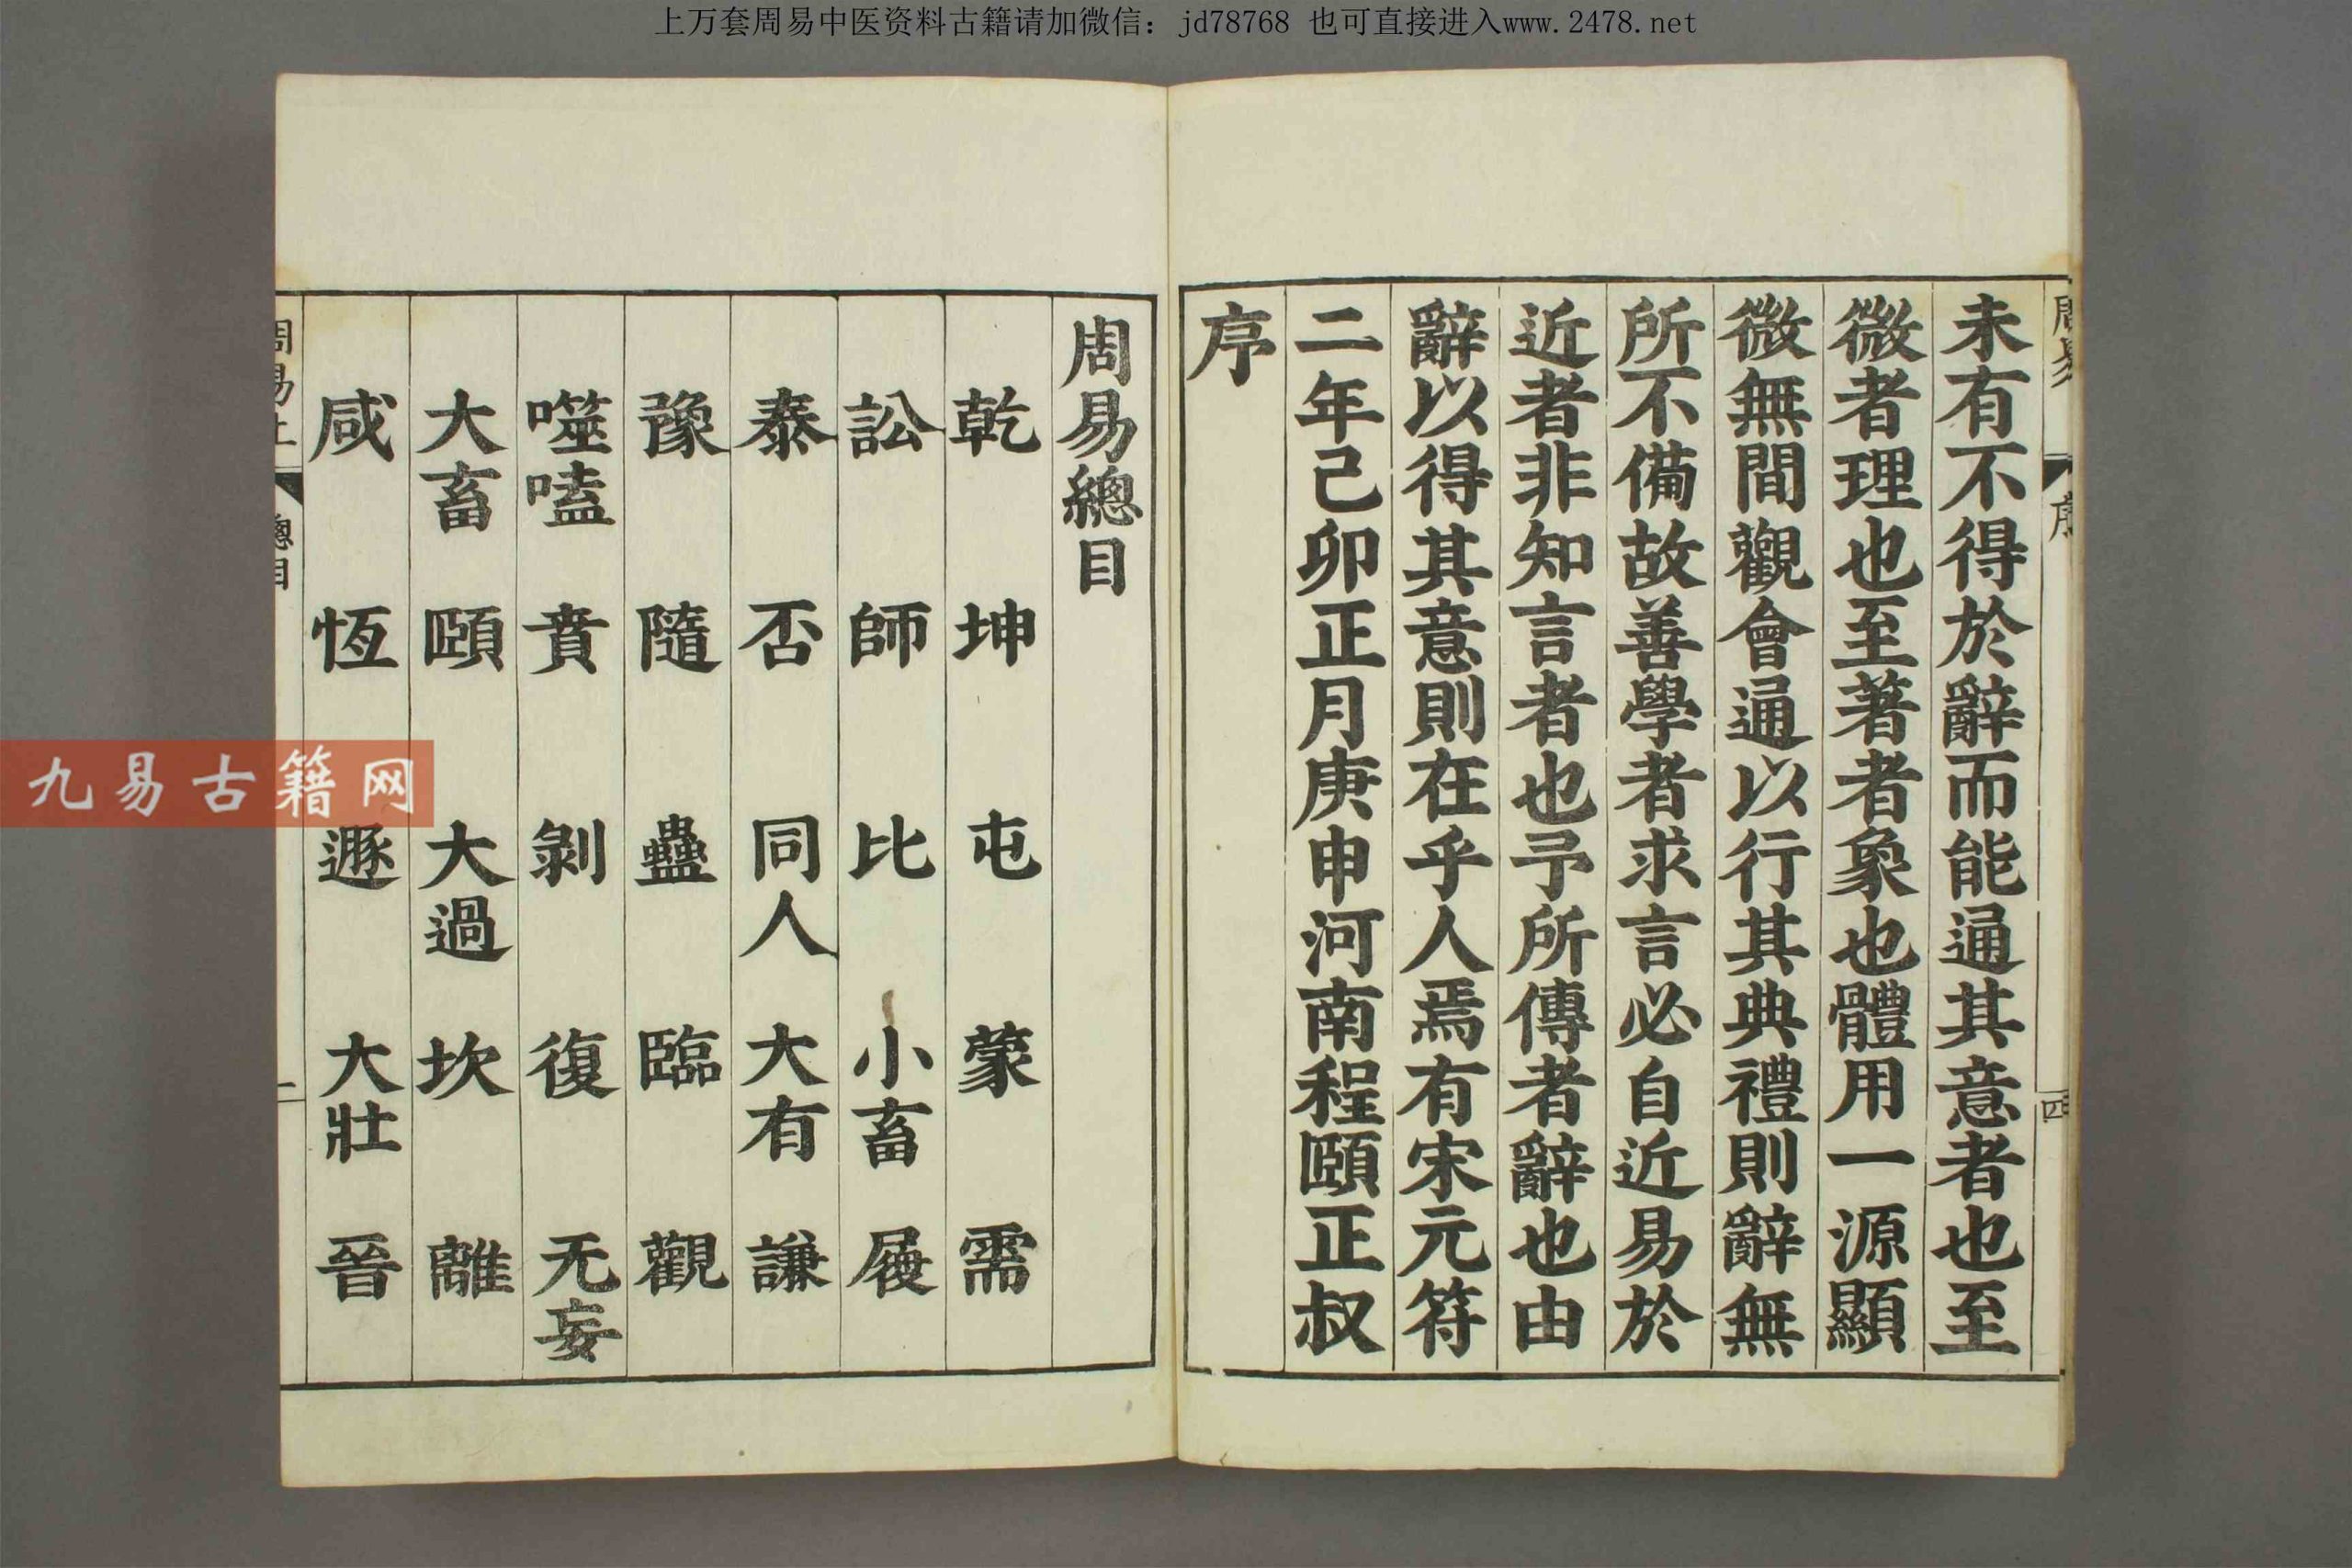 上万套周易中医资料古籍请加微信：jd78768 也可直接进入www.2478.net
周易
序
四
未有不得於辭而能通其意者也至
微者理也至著者象也體用一源顯
微無間觀會通以行其典禮則辭無
所不備故善學者求言必自近易於
近者非知言者也予所傳者辭也由
辭以得其意則在乎人焉有宋元符
二年己卯正月庚申河南程頤正叔
序
周易總目
乾 坤 屯 蒙 需
訟 師 比 小畜 履
泰 否 同人 大有 謙
豫 隨 蠱 臨 觀
噬嗑 賁 剝 復 无妄
大畜 頤 大過 坎 離
咸 恆 遯 大壯 晉
周易上
總目
九易古籍网